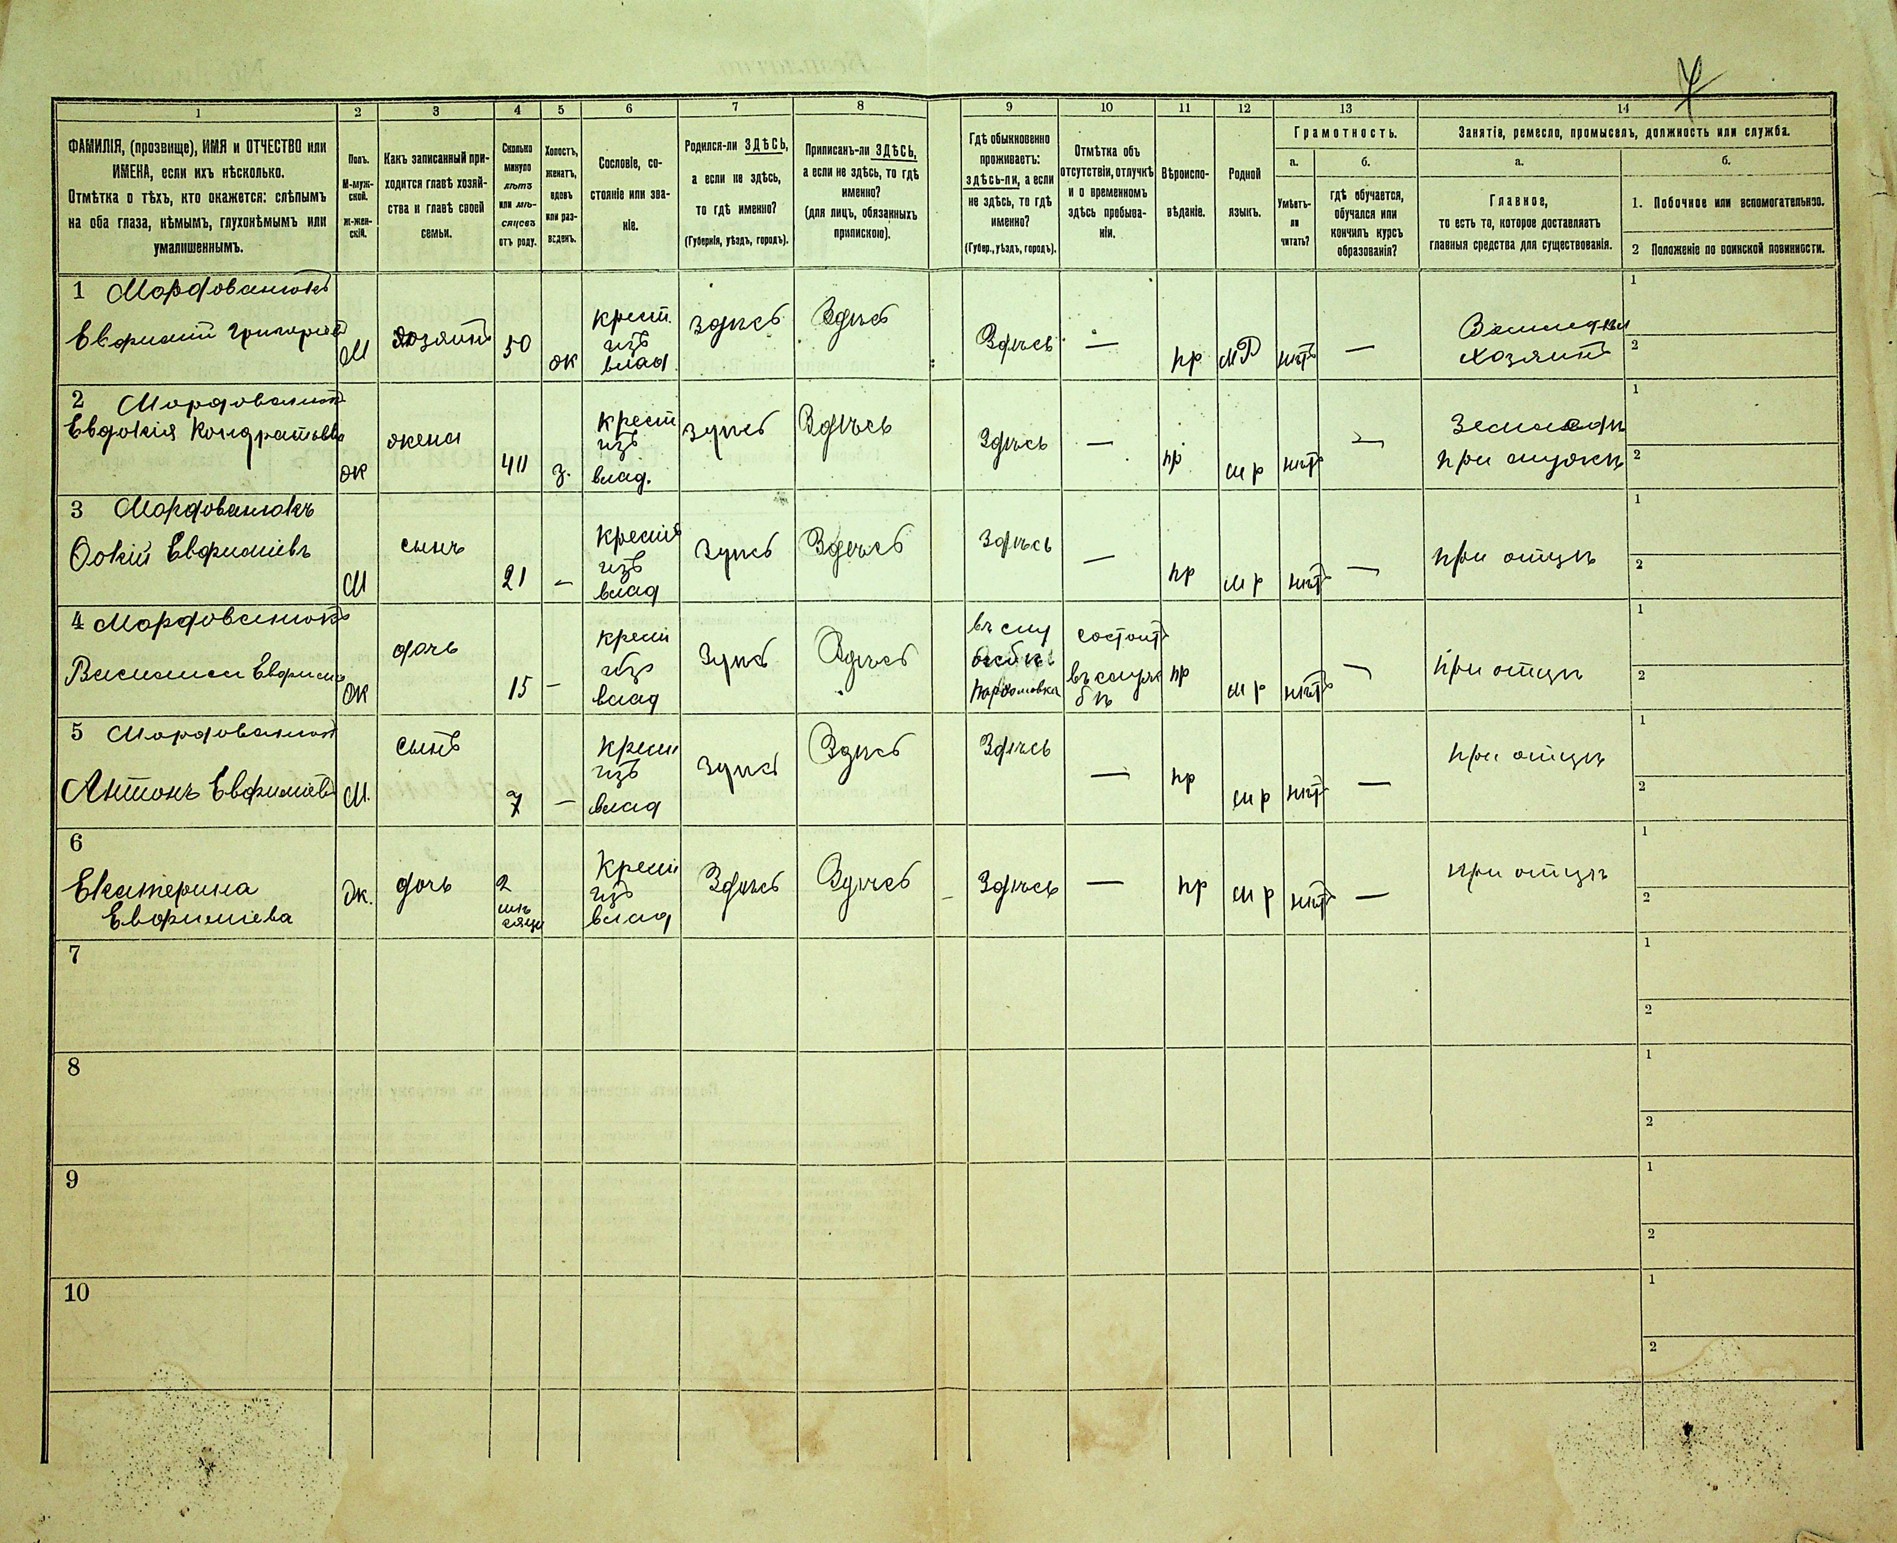 1 2 3 4 5 6 7 8 9 10 11 12 13 14
ФАМИЛІЯ, (прозвище), ИМЯ и ОТЧЕСТВО или
ИМЕНА, если ихъ нѣсколько.
Отмѣтка о тѣхъ, кто окажется: слѣпымъ
на оба глаза, нѣмымъ, глухонѣмымъ или
умалишеннымъ.
Полъ.
М-муж-
ской.
ж-жен-
скій.
Какъ записанный при-
ходится главѣ хозяй-
ства и главѣ своей
семьи.
Сколько
минуло
лѣтъ
или мѣ-
сяцевъ
отъ роду.
Холостъ,
женатъ,
вдовъ
или раз-
веденъ.
Сословіе, со-
стояніе или зва-
ніе.
Родился-ли ЗДѢСЬ,
а если не здѣсь,
то гдѣ именно?
(Губернія, уѣздъ, городъ).
Приписанъ-ли ЗДѢСЬ,
а если не здѣсь, то гдѣ
именно?
(для лицъ, обязанныхъ
припискою).
Гдѣ обыкновенно
проживаетъ:
здѣсь-ли, а если
не здѣсь, то гдѣ
именно?
(Губер., уѣздъ, городъ).
Отмѣтка объ
отсутствіи, отлучкѣ
и о временномъ
здѣсь пребыва-
ніи.
Вѣроиспо-
вѣданіе.
Родной
языкъ.
Грамотность.
а.
Умѣетъ-
ли
читать?
б.
гдѣ обучается,
обучался или
кончилъ курсъ
образованія?
Занятія, ремесло, промыселъ, должность или служба.
а.
Главное,
то есть то, которое доставляетъ
главныя средства для существованія.
б.
1. Побочное или вспомогательное.
2 Положеніе по воинской повинности.
1 Мордованюкъ
Евфимій Григорьев
М
хозяинъ
50
ж
крест.
изъ
влад.
здѣсь
Здѣсь
Здѣсь
—
пр
мР
нѣтъ
—
Земледѣл
хозяинъ
1
2
2 Мордованюк
Евдокія Кондратьева
ж
жена
40
з.
крест
изъ
влад.
здѣсь
Здѣсь
Здѣсь
—
пр
мр
нѣтъ
—
Земледѣл
при мужѣ
1
2
3 Мордованюкъ
Евфиміевъ
М
сынъ
21
—
крест
изъ
влад
здѣсь
Здѣсь
Здѣсь
—
пр
мр
нѣтъ
—
при отцѣ
1
2
4 Мордованюкъ
Василиса Евфиміе
ж
дочь
15
—
крест
изъ
влад
здѣсь
Здѣсь
въ слу
жбѣ
состоитъ
въ служ
бѣ
пр
мр
нѣтъ
—
при отцѣ
1
2
5 Мордованюк
Антонъ Евфиміевъ
М.
сынъ
7
—
крест
изъ
влад
здѣсь
Здѣсь
Здѣсь
—
пр
мр
нѣтъ
—
при отцѣ
1
2
6
Екатерина
Евфиміева
ж.
дочь
2
мѣ
сяца
крест
изъ
влад
Здѣсь
Здѣсь
Здѣсь
—
пр
мр
нѣтъ
—
при отцѣ
1
2
7
1
2
8
1
2
9
1
2
10
1
2